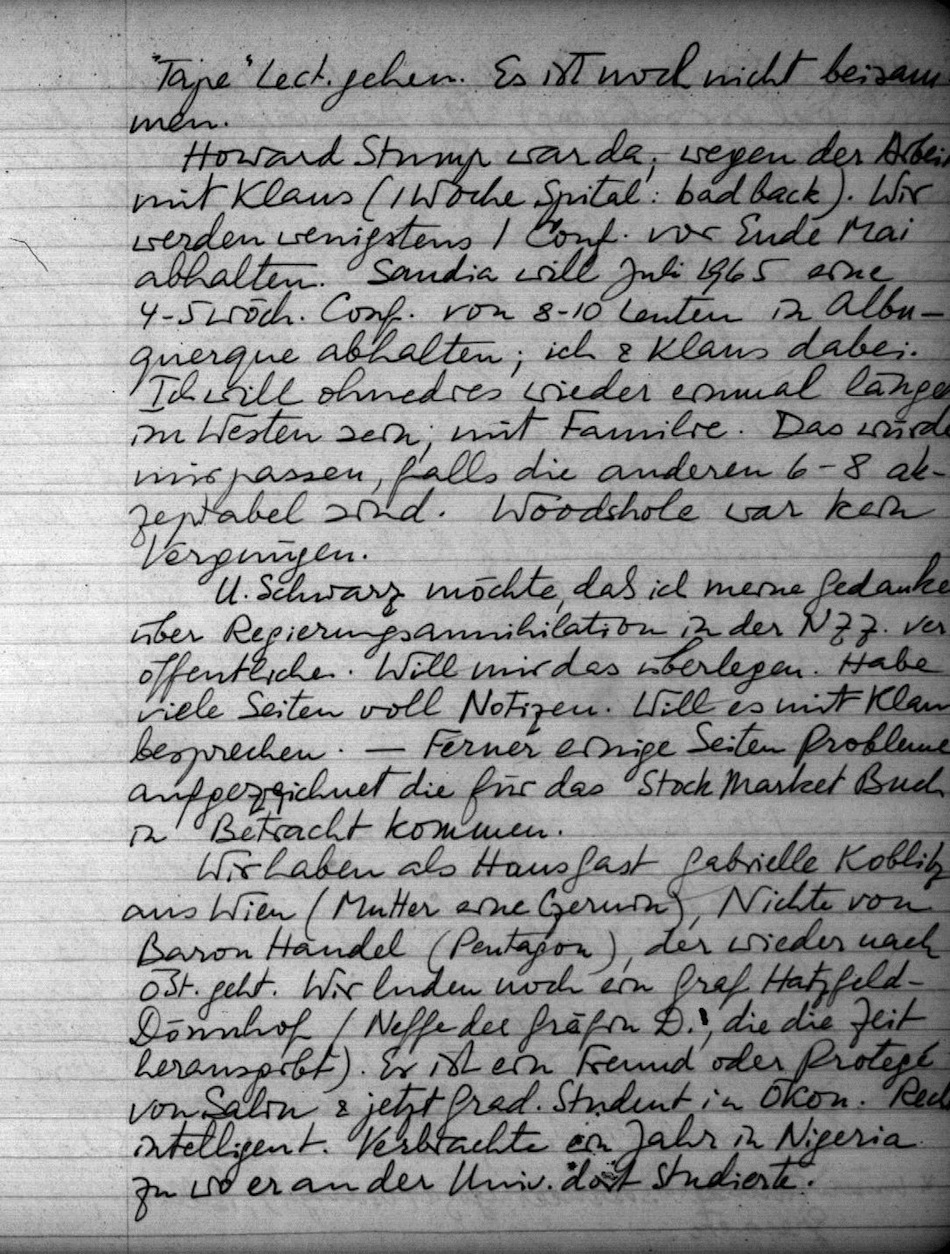 "Tape" Lect. gehen. Es ist noch nicht beisam
men.
Howard Stump war da, wegen der Arbei
mit Klaus (1 Woche Spital: bad back). Wir
werden wenigstens 1 Conf. vor Ende Mai
abhalten. Sandia will Juli 1965 eine
4-5 wöch. Conf. von 8-10 Leuten in Albu-
querque abhalten; ich & Klaus dabei.
Ich will ohnedies wieder einmal länge
im Westen sein, mit Familie. Das würde
mir passen, falls die anderen 6-8 ak-
zeptabel sind. Woodshole war kein
Vergnügen.
U. Schwarz möchte, daß ich meine Gedanke
über Regierungsannihilation in der NZZ. ver
öffentliche. Will mir das überlegen. Habe
viele Seiten voll Notizen. Will es mit Klau
besprechen. — Ferner einige Seiten Probleme
aufgezeichnet die für das Stock Market Buch
in Betracht kommen.
Wir haben als Hausgast Gabrielle Koblitz
aus Wien (Mutter eine Czernin), Nichte von
Baron Handel (Pentagon), der wieder nach
Öst. geht. Wir luden noch ein Graf Hatzfeld-
Dönnhof (Neffe der Gräfin D., die die Zeit
herausgibt). Er ist ein Freund oder Protegé
von Salin & jetzt Grad. Student in Ökon. Rech
intelligent. Verbrachte ein Jahr in Nigeria
zu wo er an der Univ. dort studierte.